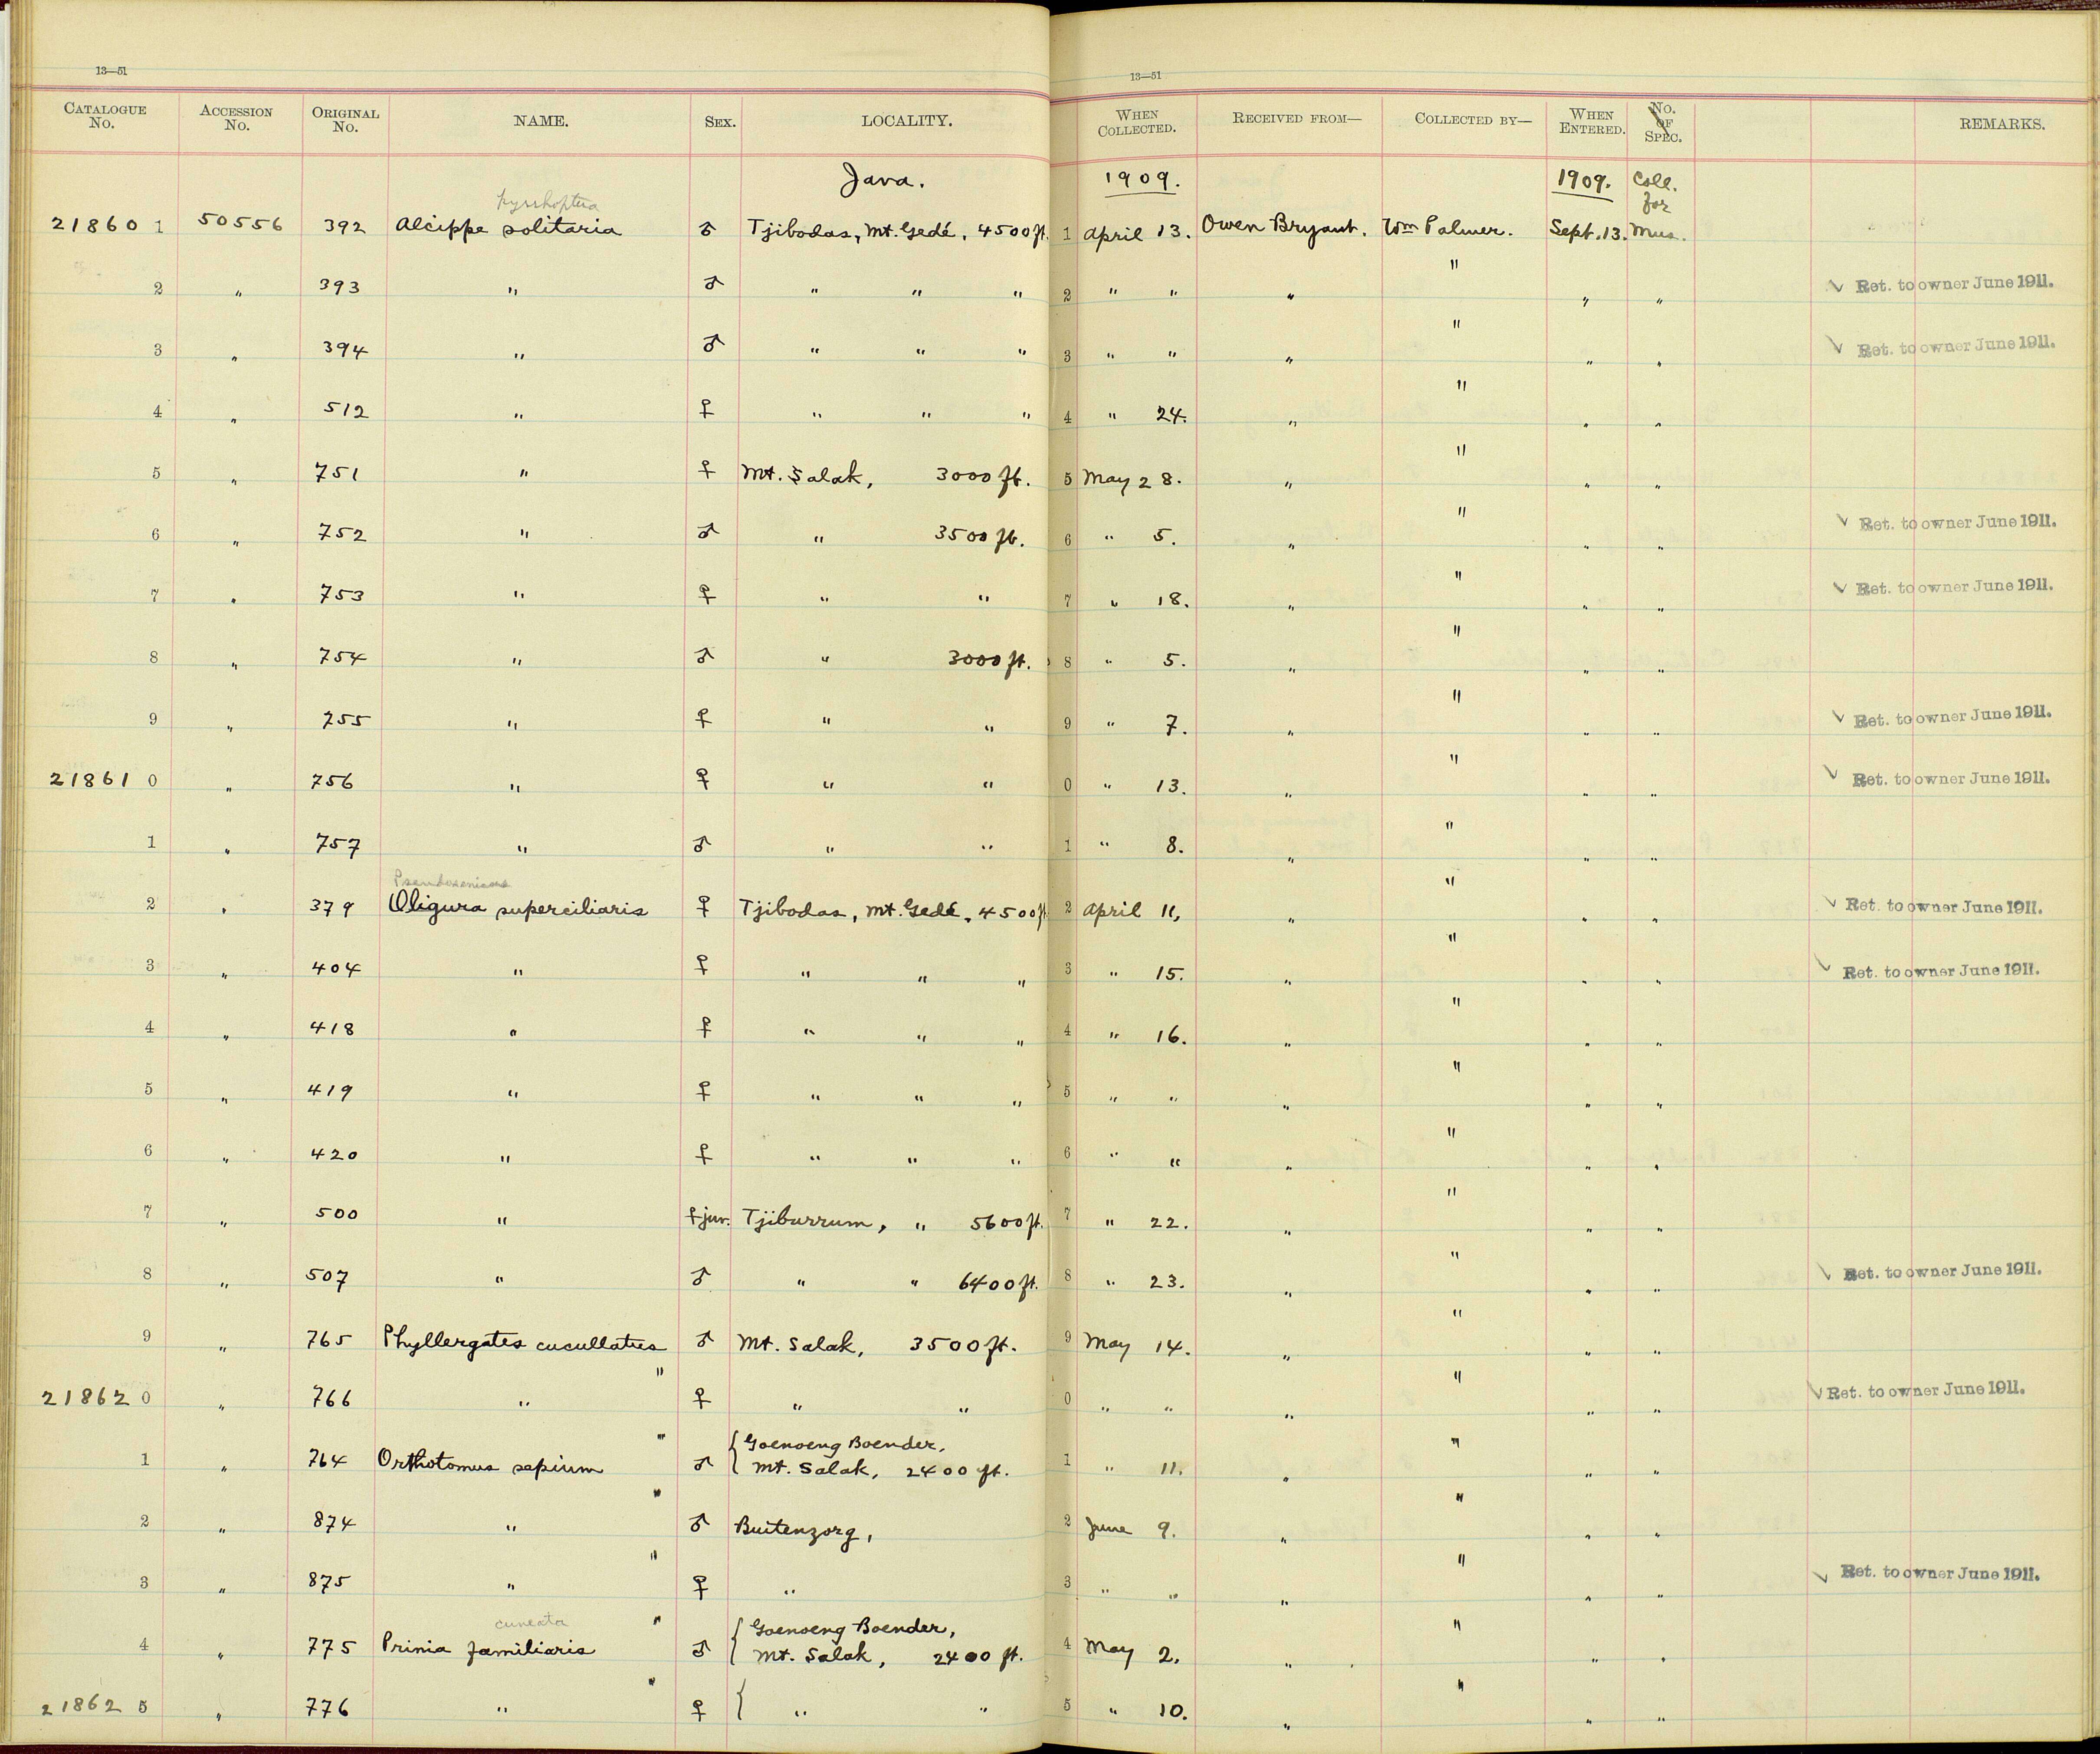 13—51
CATALOGUE No. ACCESSION No. ORIGINAL No. NAME. SEX. LOCALITY.
13—51
WHEN COLLECTED. RECEIVED FROM— COLLECTED BY— WHEN ENTERED. No. OF SPEC. REMARKS.
Java. 1909. 1909. Coll. for
pyrrhoptera
21860 1 50556 392 Alcippe solitaria ♂ Tjibodas, Mt. Gedé, 4500 ft. 1 April 13. Owen Bryant. Wm Palmer. Sept. 13. Mus.
2 " 393 " ♂ " " " 2 " " " " " " Ret. to owner June 1911.
3 " 394 " ♂ " " " 3 " " " " " " Ret. to owner June 1911.
4 " 512 " ♀ " " " 4 " 24. " " " "
5 " 751 " ♀ Mt. Salak, 3000 ft. 5 May 28. " " " "
6 " 752 " ♂ " 3500 ft. 6 " 5. " " " " Ret. to owner June 1911.
7 " 753 " ♀ " " 7 " 18. " " " " Ret. to owner June 1911.
8 " 754 " ♂ " 3000 ft. 8 " 5. " " " "
9 " 755 " ♀ " " 9 " 7. " " " " Ret. to owner June 1911.
21861 0 " 756 " ♀ " " 0 " 13. " " " " Ret. to owner June 1911.
1 " 757 " ♂ " " 1 " 8. " " " "
2 " 379 Oligura superciliaris ♀ Tjibodas, Mt. Gedé, 4500 ft 2 April 11, " " " " Ret. to owner June 1911.
3 " 404 " ♀ " " " 3 " 15. " " " " Ret. to owner June 1911.
4 " 418 " ♀ " " " 4 " 16. " " " "
5 " 419 " ♀ " " " 5 " " " " " "
6 " 420 " ♀ " " " 6 " " " " " "
7 " 500 " ♀ juv. Tjiburrum, " 5600 ft. 7 " 22. " " " "
8 " 507 " ♂ " " 6400 ft. 8 " 23. " " " " Ret. to owner June 1911.
9 " 765 Phyllergates cucullatus ♂ Mt. Salak, 3500 ft. 9 May 14. " " " "
21862 0 " 766 " " ♀ " " 0 " " " " " " Ret. to owner June 1911.
1 " 764 Orthotomus sepium " ♂ { Goenoeng Boender,
Mt. Salak, 2400 ft. 1 " 11. " " " "
2 " 874 " " ♂ Buitenzorg, 2 June 9. " " " "
3 " 875 " " ♀ " 3 " " " " " " Ret. to owner June 1911.
cuneata
4 " 775 Prinia familiaris " ♂ { Goenoeng Boender,
Mt. Salak, 2400 ft. 4 May 2. " " " "
21862 5 " 776 " " ♀ { " " 5 " 10. " " " "